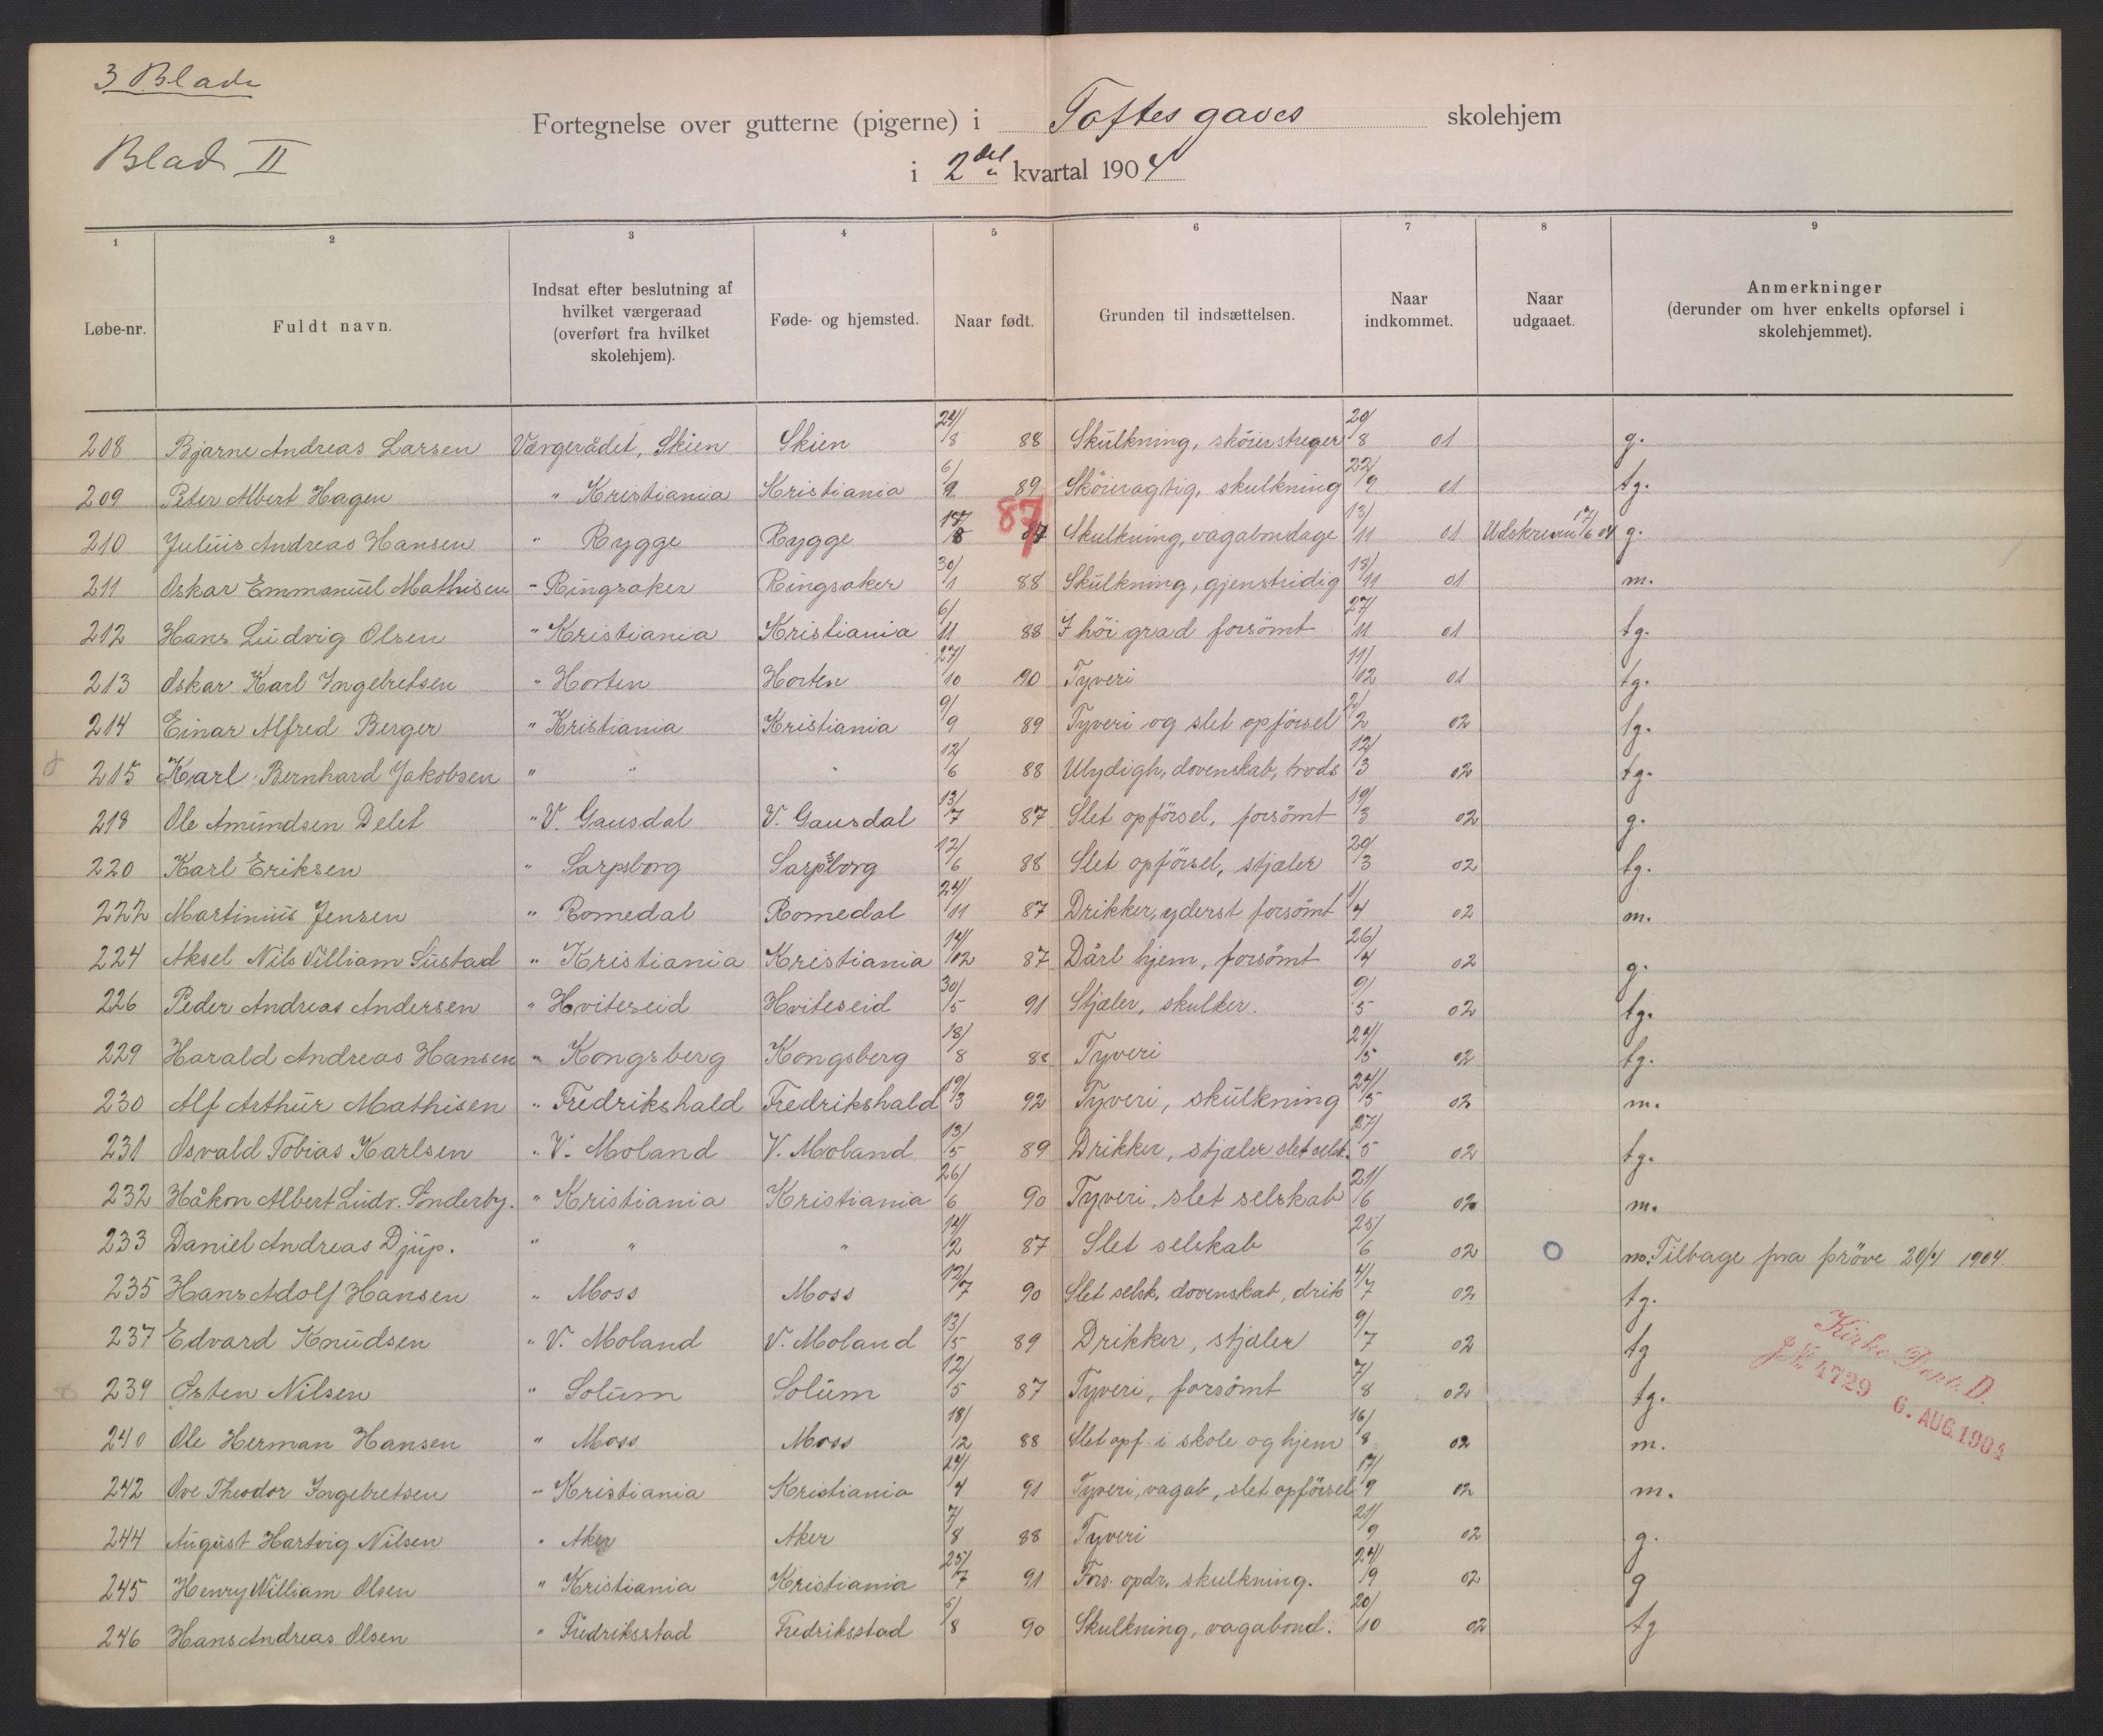 3 Blade
Blad II
Fortegnelse over gutterne (pigerne) i Toftes gaves skolehjem
i 2det kvartal 1904
1 2 3 4 5 6 7 8 9
Løbe-nr. Fuldt navn. Indsat efter beslutning af hvilket værgeraad (overført fra hvilket skolehjem). Føde- og hjemsted. Naar født. Grunden til indsættelsen. Naar indkommet. Naar udgaaet. Anmerkninger (derunder om hver enkelts opførsel i skolehjemmet).
208 Bjarne Andreas Larsen Værgerådet, Skien Skien 24/8 88 Skulkning, skøierstreger 20/8 01 g.
209 Peter Albert Hagen " Kristiania Kristiania 6/9 89 Skøieragtig, skulkning 22/9 01 tg.
210 Julius Andreas Hansen " Rygge Rygge 17/8 87 87 Skulkning, vagabondage 13/11 01 Udskreven 17/6 04 g.
211 Oskar Emmanuel Mathisen " Ringsaker Ringsaker 30/1 88 Skulkning, gjenstridig 18/11 01 m.
212 Hans Ludvig Olsen " Kristiania Kristiania 6/11 88 I høi grad forsømt 27/11 01 tg.
213 Oskar Karl Ingebretsen " Horten Horten 27/10 90 Tyveri 11/12 01 tg.
214 Einar Alfred Berger " Kristiania Kristiania 9/9 89 Tyveri og slet opførsel 2/2 02 tg.
215 Karl Bernhard Jakobsen " " " 12/6 88 Ulydigh, dovenskab, trods 12/3 02 tg.
218 Ole Amundsen Delet " V. Gausdal V. Gausdal 13/7 87 Slet opførsel, forsømt 19/3 02 g.
220 Karl Eriksen " Sarpsborg Sarpsborg 12/6 88 Slet opførsel, stjæler 20/3 02 tg.
222 Martinius Jensen " Romedal Romedal 24/11 87 Drikker, yderst forsømt 1/4 02 m.
224 Aksel Nils Villiam Sustad " Kristiania Kristiania 14/12 87 Dårl hjem, forsømt 26/4 02 g.
226 Peder Andreas Andersen " Hviteseid Hviteseid 30/5 91 Stjæler, skulker. 9/5 02 tg.
229 Harald Andreas Hansen " Kongsberg Kongsberg 18/8 88 Tyveri 24/5 02 tg.
230 Alf Arthur Mathisen " Fredrikshald Fredrikshald 19/3 92 Tyveri, skulkning 24/5 02 m.
231 Osvald Tobias Karlsen " V. Moland V. Moland 13/5 89 Drikker, stjæler slet selsk. 27/5 02 tg.
232 Håkon Albert Ludv. Sønderby. " Kristiania Kristiania 26/6 90 Tyveri, slet selskab 21/6 02 m.
233 Daniel Andreas Djup. " " " 14/2 87 Slet selskab 25/6 02 m. Tilbage fra prøve 20/4 1904.
235 Hans Adolf Hansen " Moss Moss 12/7 90 Slet selsk. dovenskab, drik 4/7 02 tg.
237 Edvard Knudsen " V. Moland V. Moland 13/5 89 Drikker, stjæler 9/7 02 tg
239 Østen Nilsen " Solum Solum 12/5 87 Tyveri, forsømt 7/8 02 tg.
Kirke Dept. D.
J. No. 4729 6. AUG. 1904
240 Ole Herman Hansen " Moss Moss 18/12 88 Slet opf. i skole og hjem 16/8 02 m.
242 Ove Theodor Ingebretsen " Kristiania Kristiania 24/4 91 Tyveri, vagab, slet opførsel 17/9 02 m.
244 August Hartvig Nilsen " Aker Aker 7/8 88 Tyveri 21/9 02 g.
245 Henry William Olsen " Kristiania Kristiania 25/7 91 Fors. opdr. skulkning. 24/9 02 g
246 Hans Andreas Olsen " Fredriksstad Fredriksstad 5/8 90 Skulkning, vagabond. 20/10 02 tg